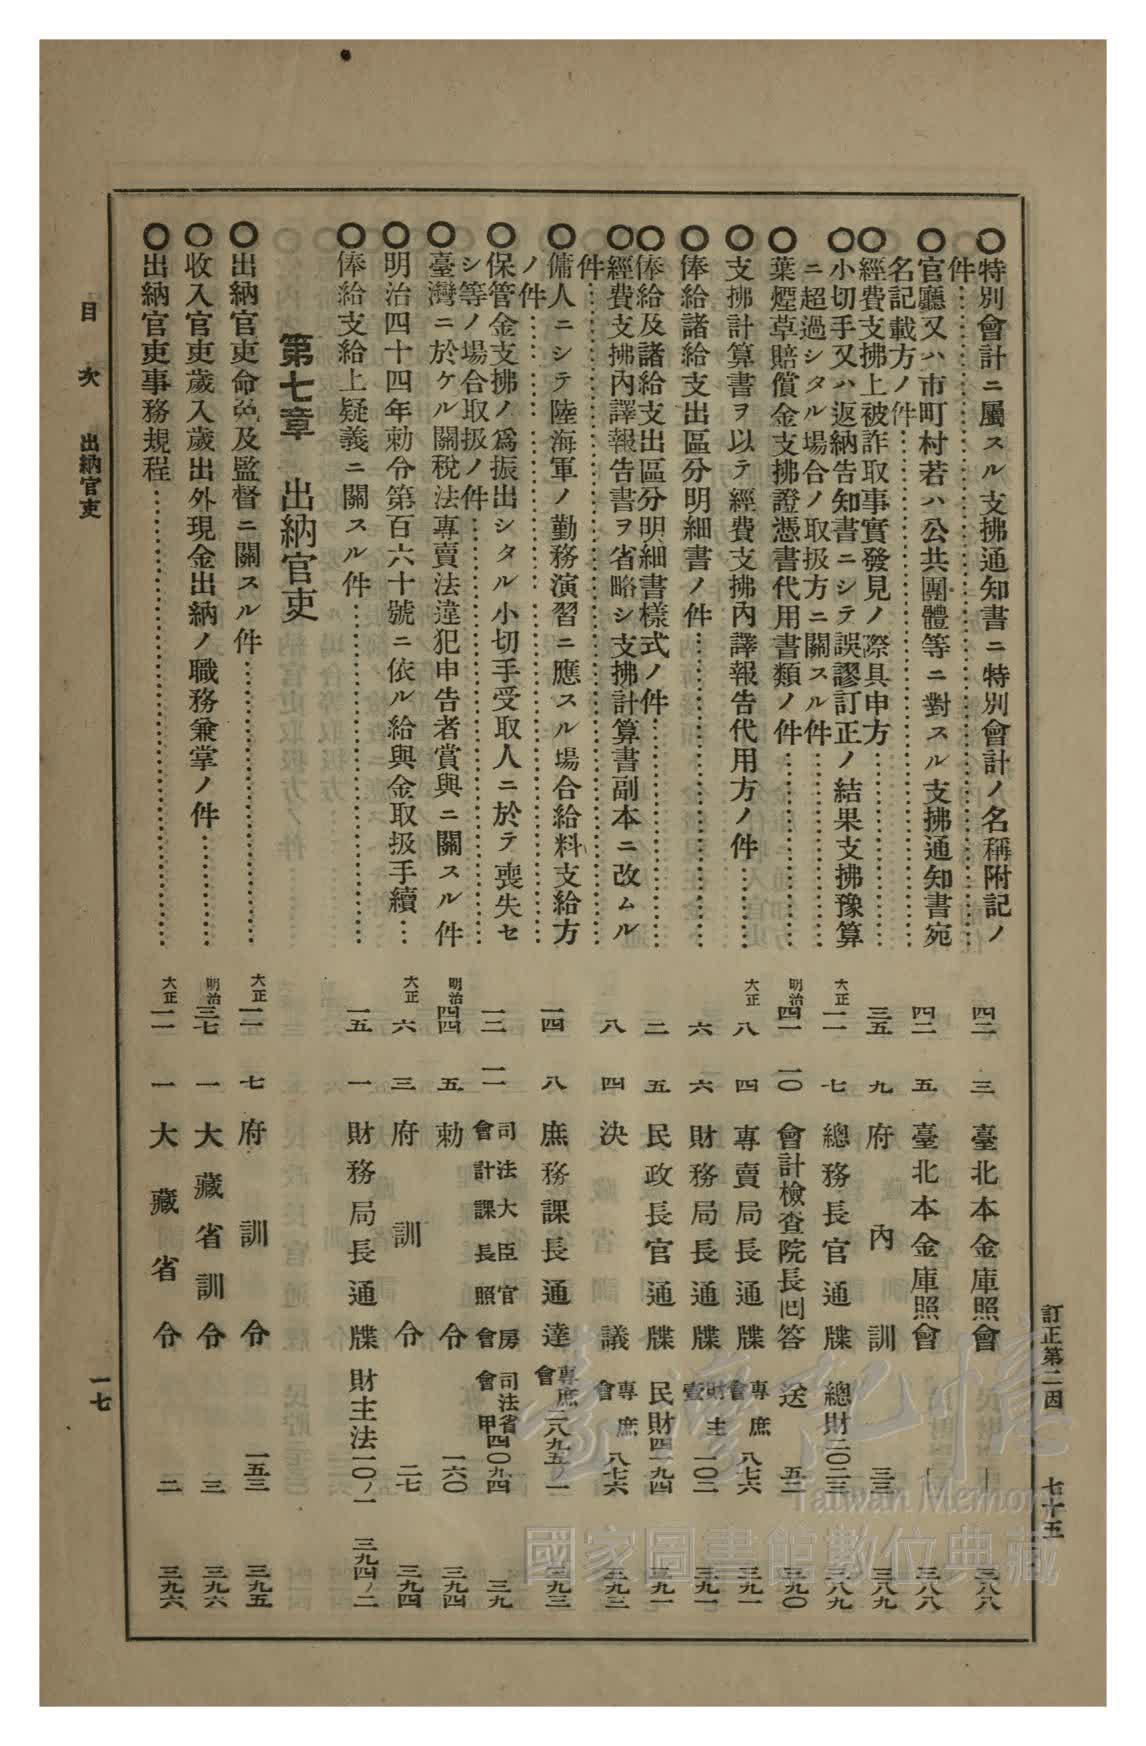 訂正第二 七十五
〇特別會計ニ屬スル支拂通知書ニ特別會計ノ名稱附記ノ
件 四二 三 臺北本金庫照會 三八八
〇官廳又ハ市町村若ハ公共團體等ニ對スル支拂通知書宛
名記載方ノ件 四二 五 臺北本金庫照會 三八八
〇經費支拂上被詐取事實發見ノ際具申方 三五 九 府內訓 三八九
〇小切手又ハ返納告知書ニシテ誤謬訂正ノ結果支拂豫算
ニ超過シタル場合ノ取扱方ニ關スル件 大正一一 七 總務長官通牒 總財二〇二三 三八九
〇葉煙草賠償金支拂證憑書代用書類ノ件 明治四一 一〇 會計檢查院長回答 送 五二 三九〇
〇支拂計算書ヲ以テ經費支拂內譯報告代用方ノ件 大正八 四 專賣局長通牒 專庶會 八七六 三九一
〇俸給諸給支出區分明細書ノ件 六 六 財務局長通牒 財主壹 一〇二 三九一
〇俸給及諸給支出區分明細書樣式ノ件 二 五 民政長官通牒 民財四一九四 三九一
〇經費支拂內譯報告書ヲ省略シ支拂計算書副本ニ改ムル
件 八 四 決議 專庶會 八七六 三九二
〇傭人ニシテ陸海軍ノ勤務演習ニ應スル場合給料支給方
ノ件 一四 八 庶務課長通達 專庶會二八九五ノ一 三九三
〇保管金支拂ノ爲振出シタル小切手受取人ニ於テ喪失セ
シ等ノ場合取扱ノ件 一二 一一 司法大臣官房會計課長照會 司法省會甲四〇九四 三九
〇臺灣ニ於ケル關稅法專賣法違犯申告者賞與ニ關スル件 明治四四 五 勅令 一六〇 三九四
〇明治四十四年勅令第百六十號ニ依ル給與金取扱手續 大正六 三 府訓令 二七 三九四
〇俸給支給上疑義ニ關スル件 一五 一 財務局長通牒 財主法一〇ノ一 三九四ノ二
第七章 出納官吏
〇出納官吏命免及監督ニ關スル件 大正一一 七 府訓令 一五三 三九五
〇收入官吏歲入歲出外現金出納ノ職務兼掌ノ件 明治三七 一 大藏省訓令 三 三九六
〇出納官吏事務規程 大正一一 一 大藏省令 二 三九六
目次 出納官吏 一七
臺灣記憶
Taiwan Memory
國家圖書館數位典藏